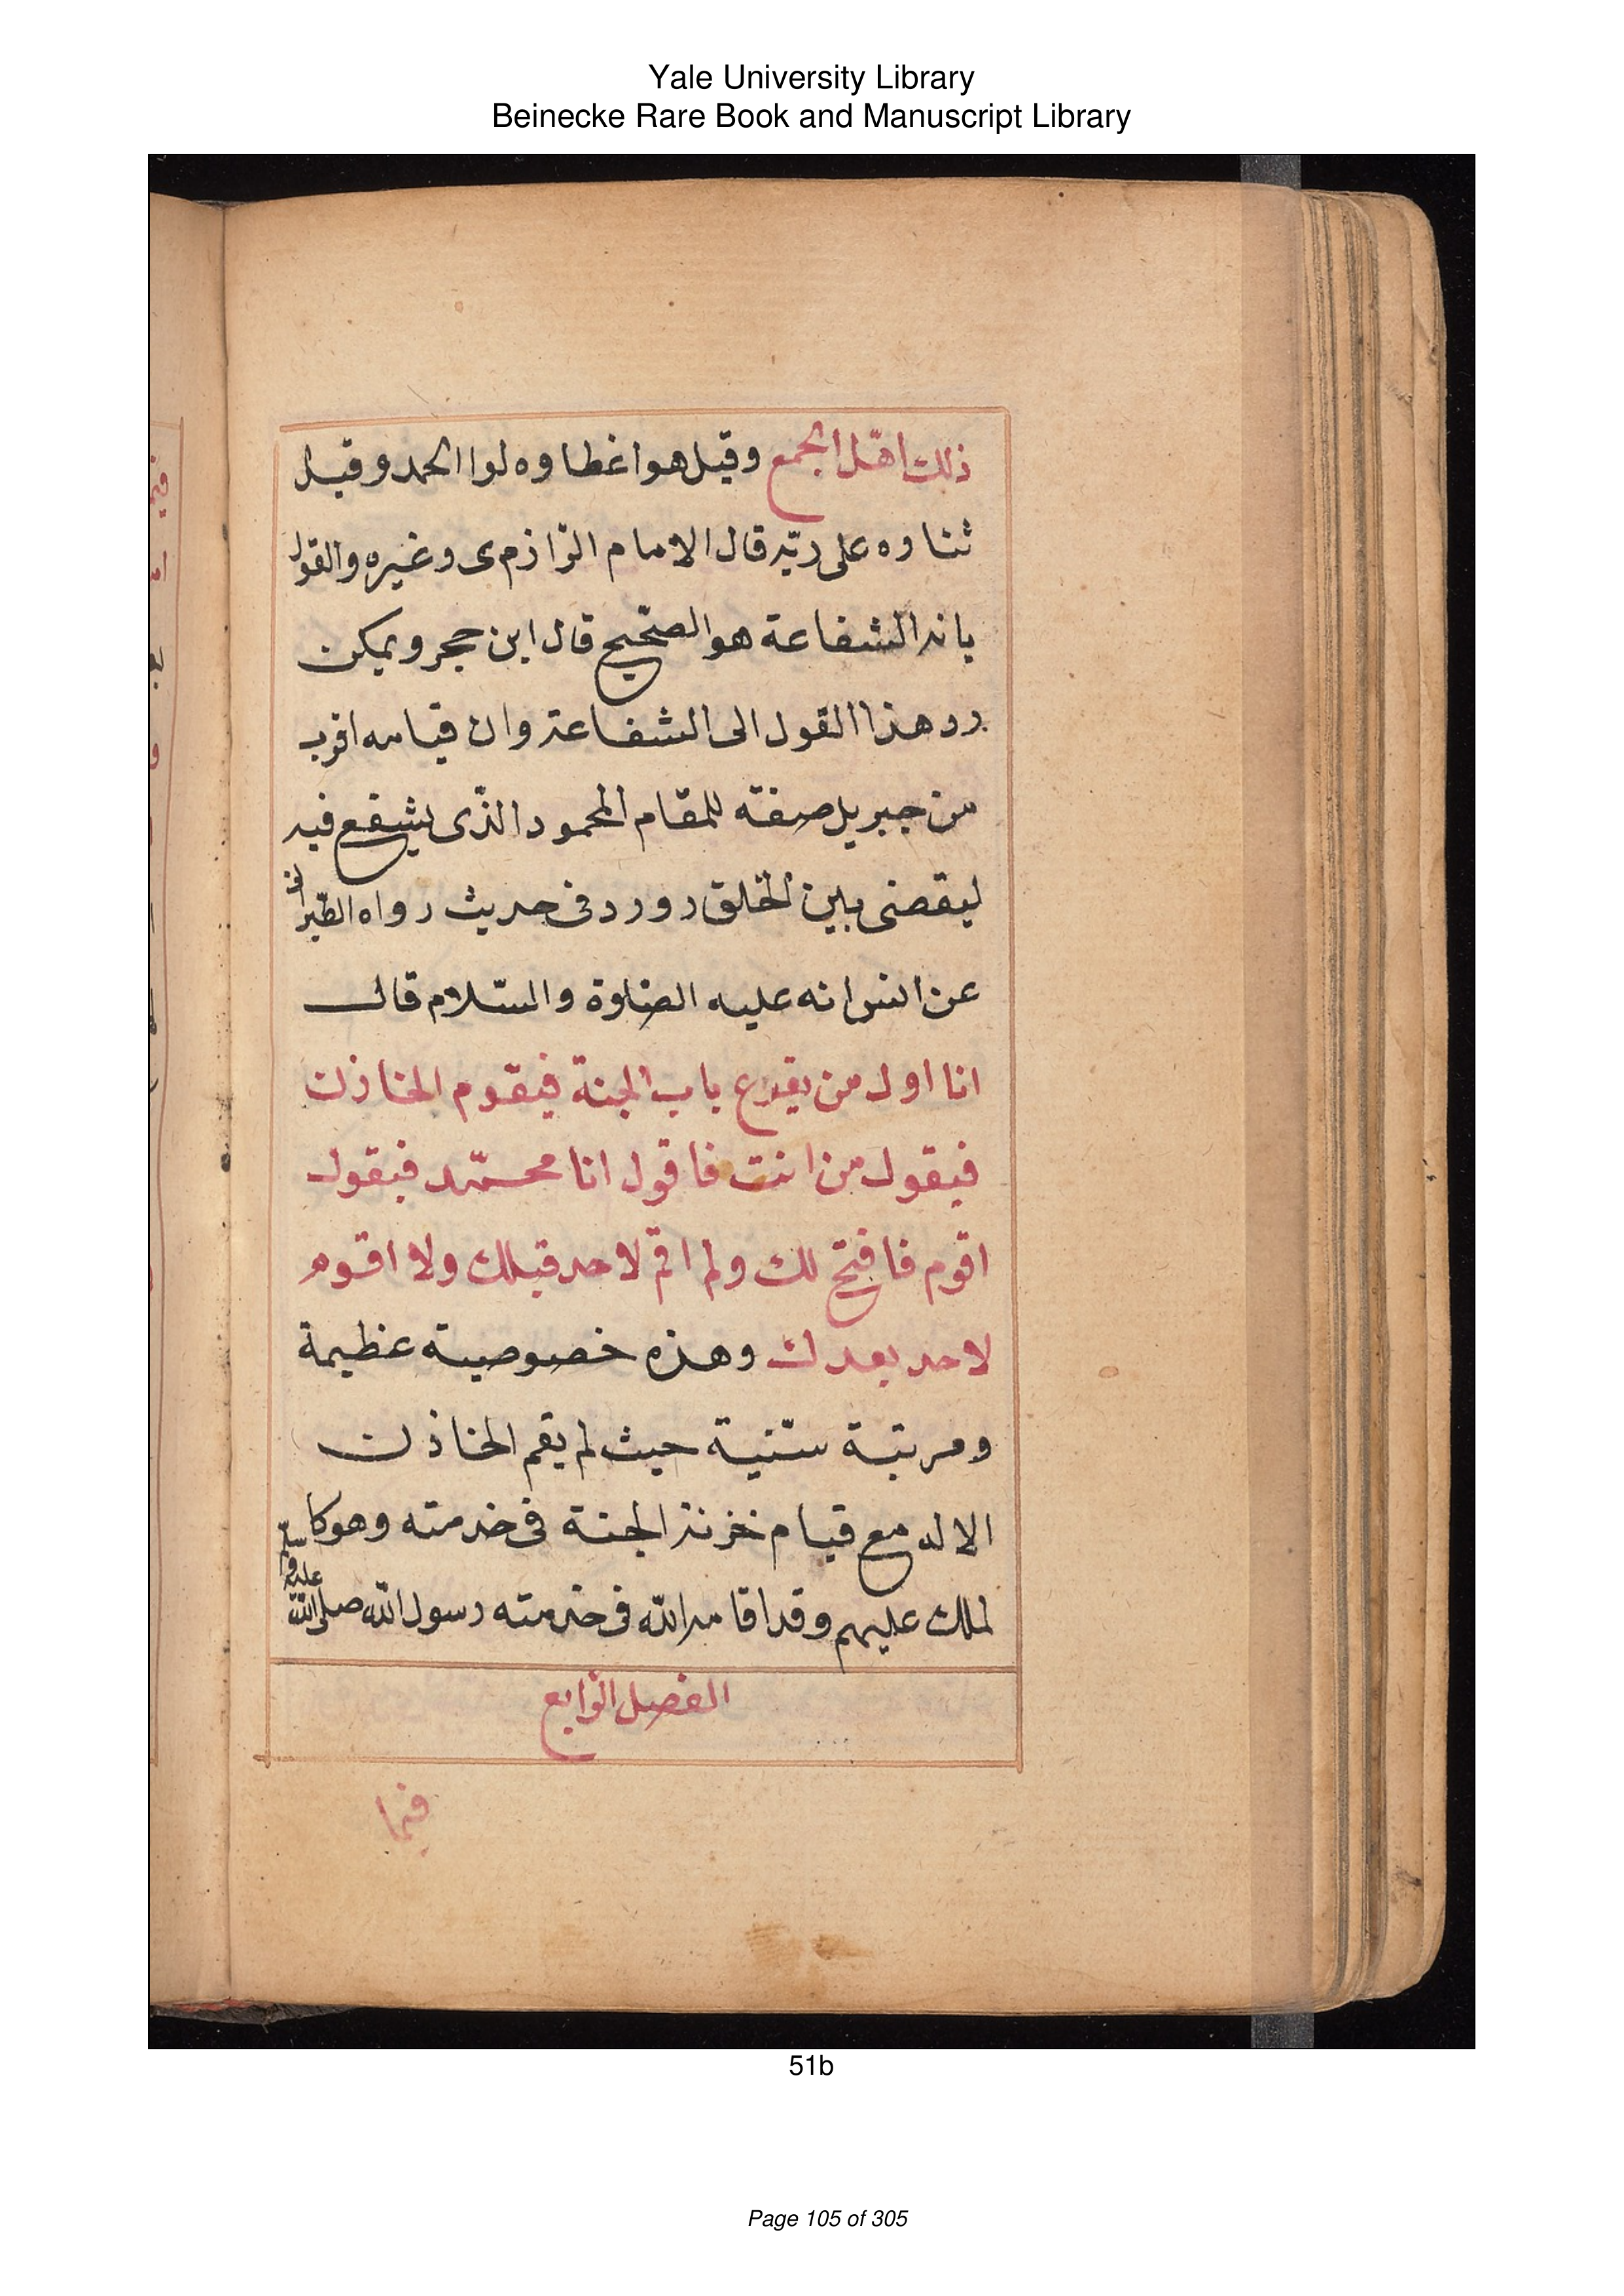 Yale University Library
Beinecke Rare Book and Manuscript Library
ذلك اهل الجمع وقيل هو اغطاوه لوا الحمد وقيل
ثناوه على ربّه قال الامام الرّازمى وغيره والقول
بانه الشفاعة هو الصحّيح قال ابن حجر ويمكن
رد هذا القول الى الشفاعة وان قيامه اقرب
من جبريل صفته للمقام المحمود الذّى يشفع فيه
ليقضى بين الخلق وورد فى حديث رواه الطّبرانى
عن انس انه عليه الصّلوة والسّلام قال
انا اول من يقرع باب الجنة فيقوم الخازن
فيقول من انت فاقول انا محمّد فيقول
اقوم فافتح لك ولم اقم لاحد قبلك ولا اقوم
لاحد بعدك وهذه خصوصيته عظيمة
ومرتبة سنّية حيث لم يقم الخازن
الا له مع قيام خزنة الجنة فى خدمته وهو كا
لملك عليهم وقد اقامه الله فى خدمته رسول الله صلى الله عليه وسلم
الفصل الرّابع
فيما
51b
Page 105 of 305